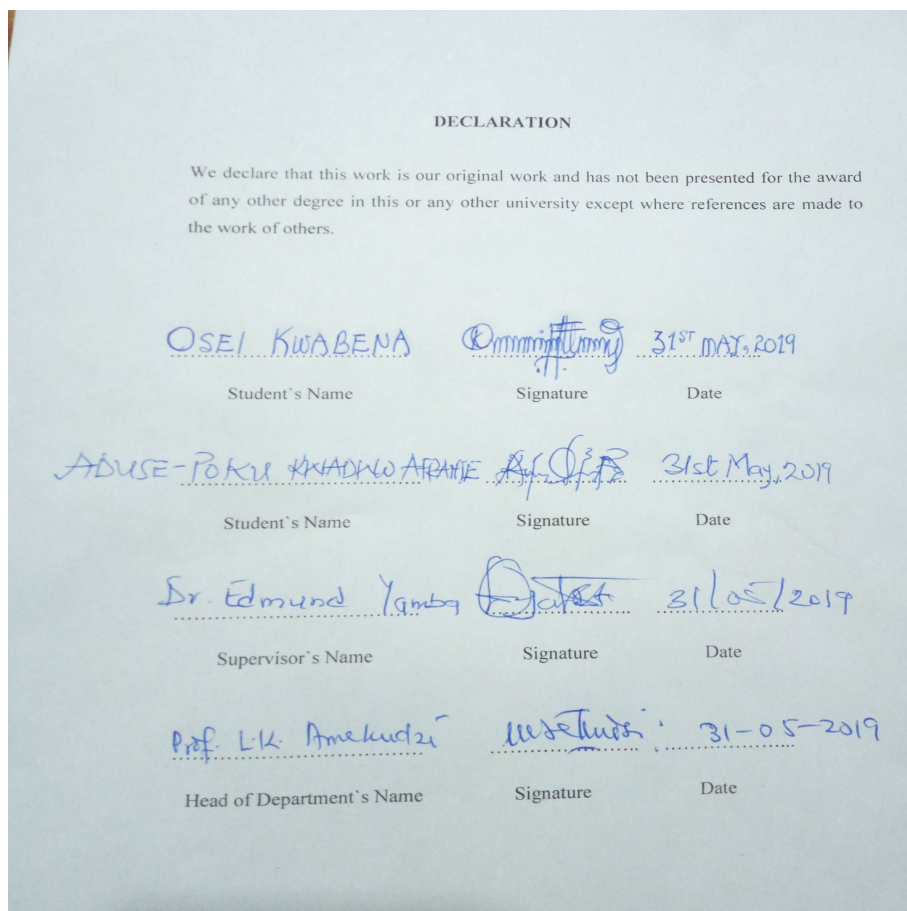 DECLARATION
We declare that this work is our original work and has not been presented for the award
of any other degree in this or any other university except where references are made to
the work of others.
OSEI KWABENA 31ST MAY, 2019
Student`s Name Signature Date
ADUSE-POKU KWADWO 31st May, 2019
Student`s Name Signature Date
Dr. Edmund Yamba 31/05/2019
Supervisor`s Name Signature Date
Prof. L.K. Amekudzi 31-05-2019
Head of Department`s Name Signature Date